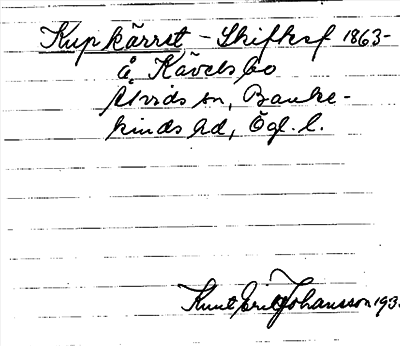 Kupkärret - Skifteskf 1863-
å Kävelsbo
Atvids sn, Banke-
kinds hd, Ögl. l.
Knut Erik Johansson 193